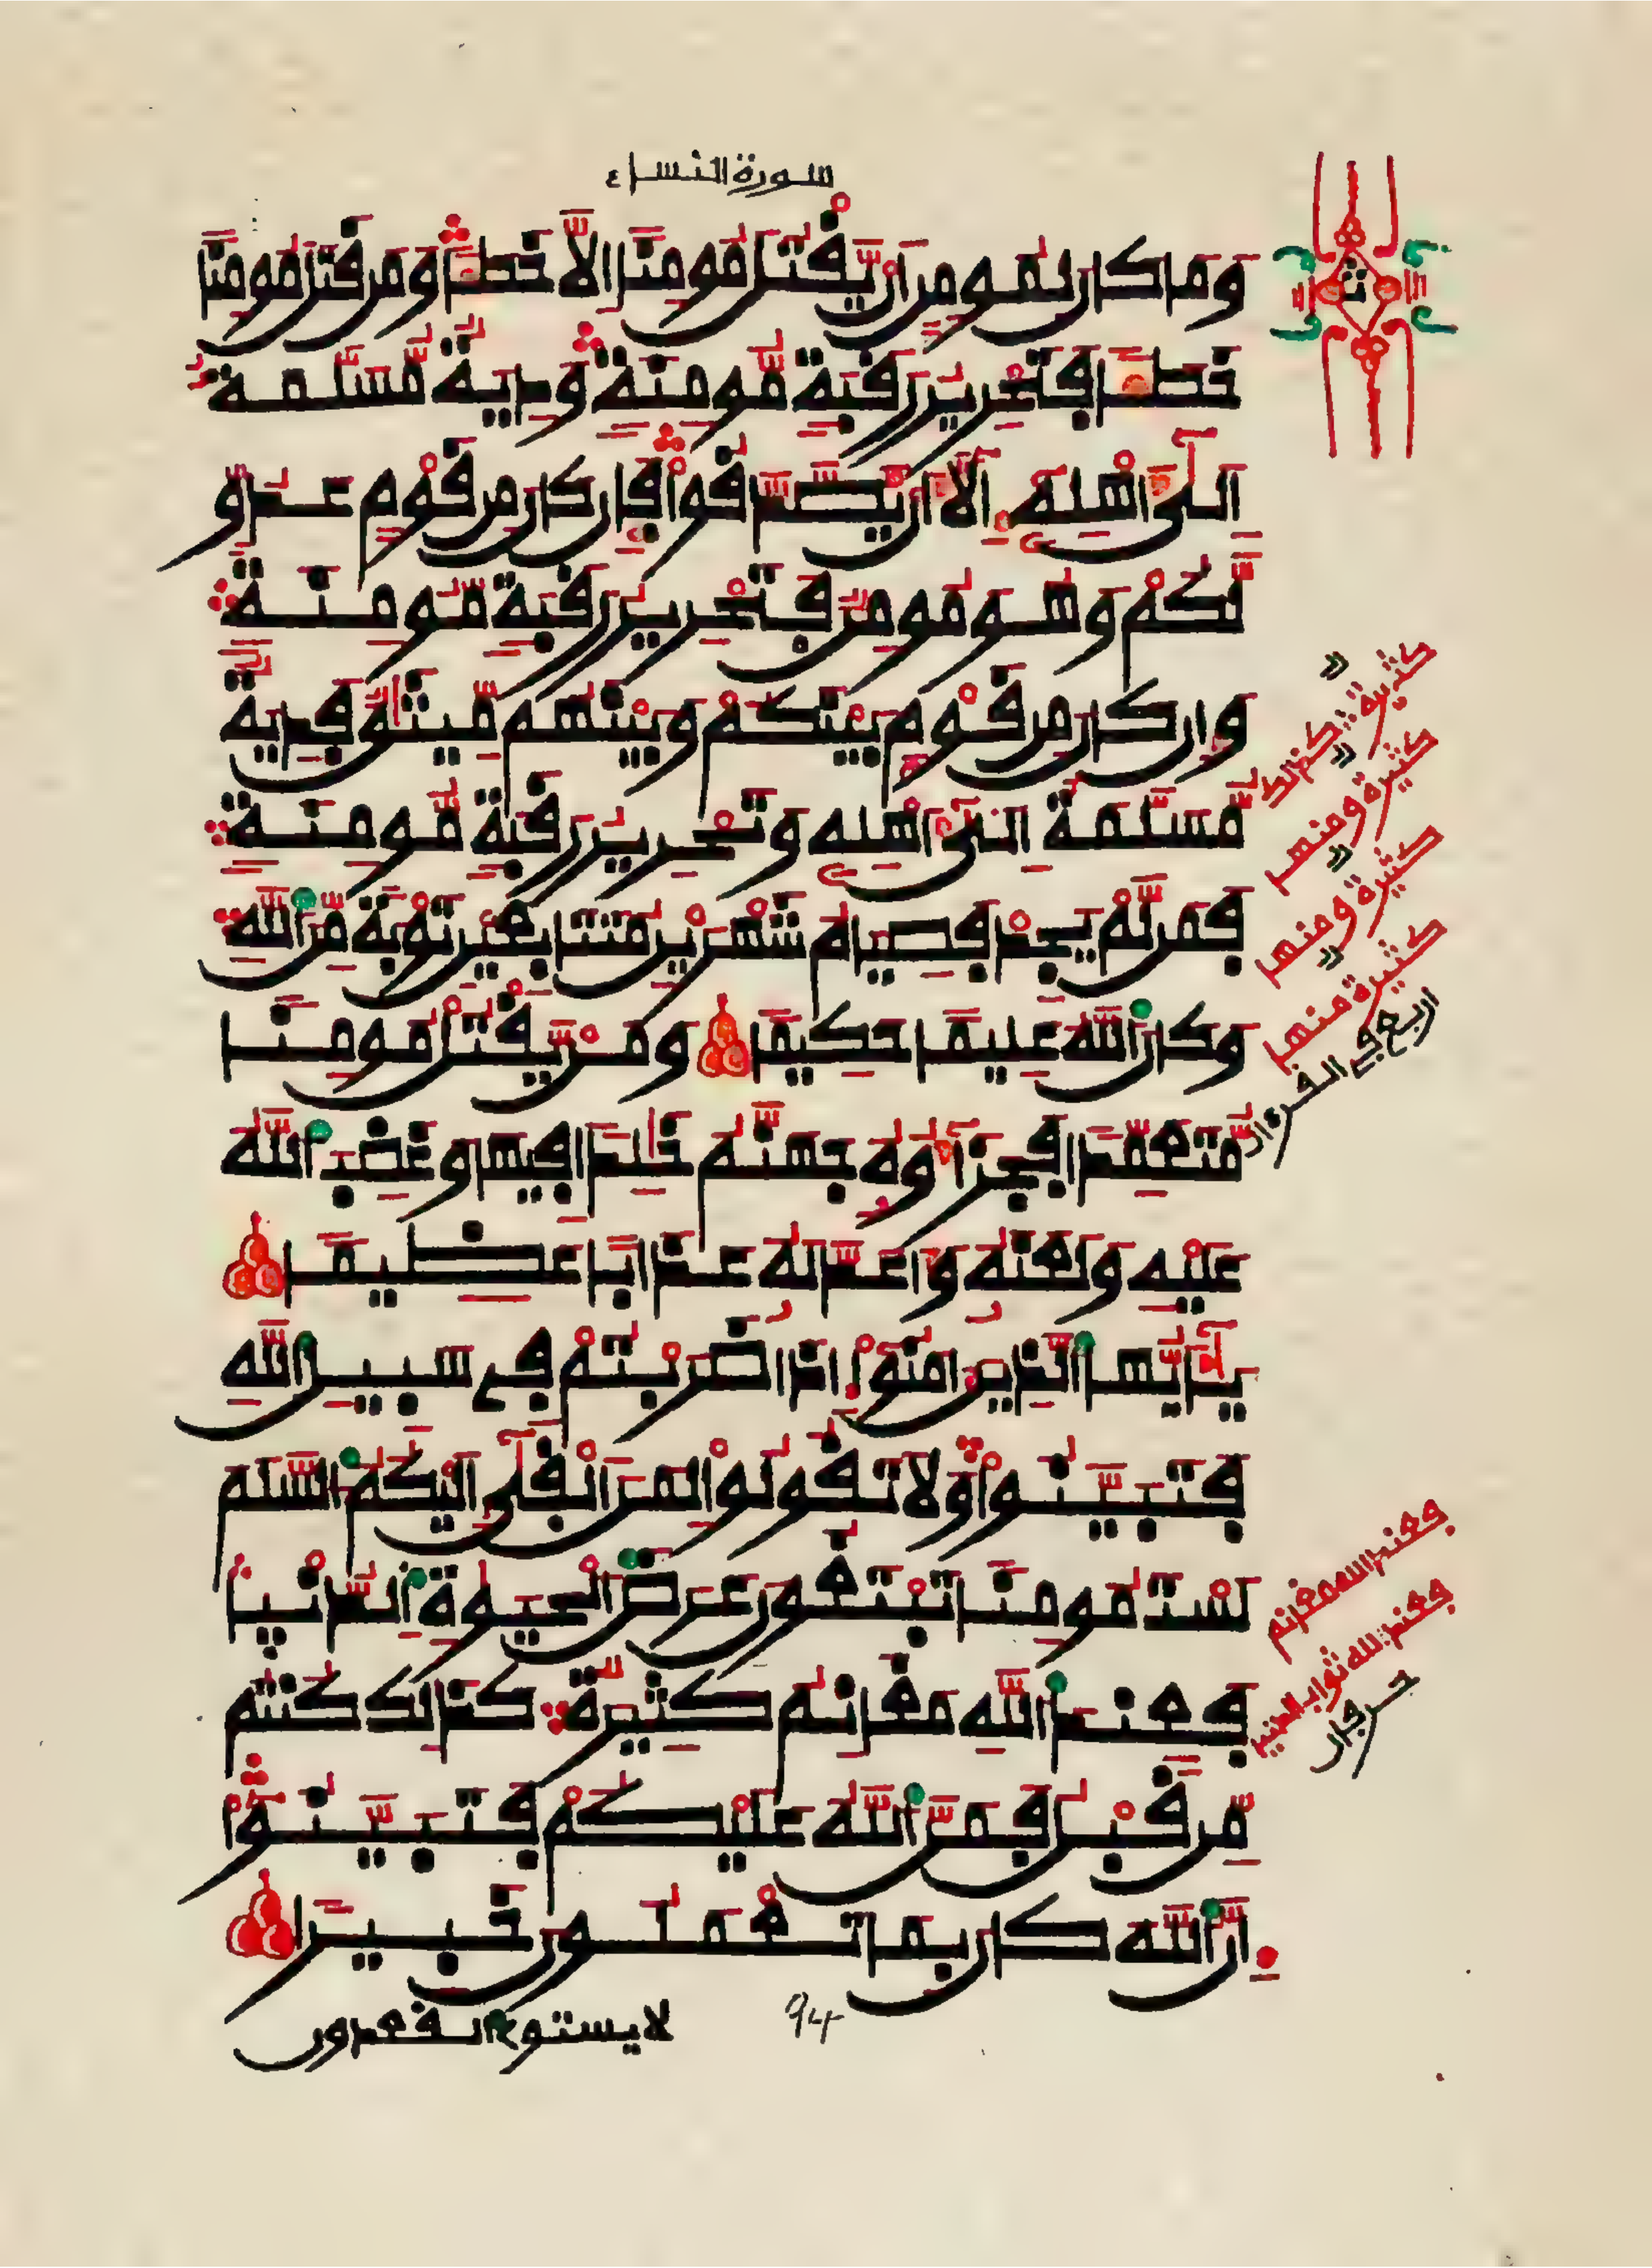 سورة النساء
وما كان لمومن ان يقتل مومنا الا خطـا ومن قتل مومنا
خطـا فتحرير رقبة مومنة ودية مسلمة
الى اهله الا ان يصدقوا فان كان من قوم عدو
لكم وهو مومن فتحرير رقبة مومنة
وان كان من قوم بينكم وبينهم ميثق فدية
مسلمة الى اهله وتحرير رقبة مومنة
فمن لم يجد فصيام شهرين متتابعين توبة من الله
وكان الله عليما حكيما ومن يقتل مومنا
متعمدا فجزاوه جهنم خلدا فيها وغضب الله
عليه ولعنه واعد له عذابا عظيما
يايها الذين امنوا اذا ضربتم في سبيل الله
فتبينوا ولا تقولوا لمن القى اليكم السلم
لست مومنا تبتغون عرض الحيوة الدنيا
فعند الله مغانم كثيرة كذلك كنتم
من قبل فمن الله عليكم فتبينوا
ان الله كان بما تعملون خبيرا
لا يستوى القعدون
94
كثيرة كذلك
كثيرة ومنها
كثيرة ومنها
كثيرة منها
اربع في القرءان
فعند الله مغانم
فعند الله ثواب الدنيا
حرفان